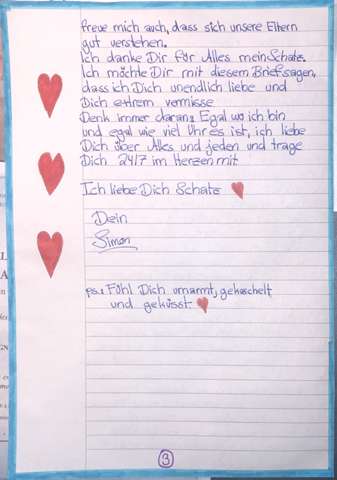 freue mich auch, dass sich unsere Eltern
gut verstehen.
Ich danke Dir für Alles mein Schatz.
Ich möchte Dir mit diesem Brief sagen,
dass ich Dich unendlich liebe und
Dich extrem vermisse
Denk immer daran: Egal wo ich bin
und egal wie viel Uhr es ist, ich liebe
Dich über Alles und jeden und trage
Dich 24/7 im Herzen mit
Ich liebe Dich Schatz
Dein
Simon
ps.: Fühl Dich umarmt, gekuschelt
und geküsst
3